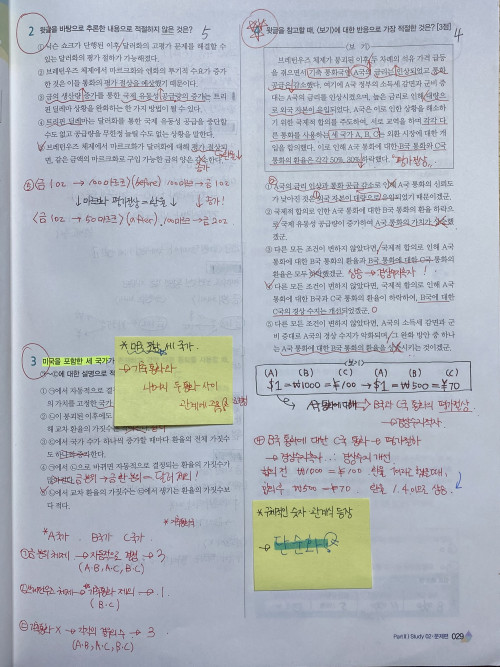 2 윗글을 바탕으로 추론한 내용으로 적절하지 않은 것은? 5
① 닉슨 쇼크가 단행된 이후 달러화의 고평가 문제를 해결할 수
있는 달러화의 평가 절하가 가능해졌다.
② 브레턴우즈 체제에서 마르크화와 엔화의 투기적 수요가 증가
한 것은 이들 통화의 평가 절상을 예상했기 때문이다.
③ 금의 생산량 증가를 통한 국제 유동성 공급량의 증가는 트리
핀 딜레마 상황을 완화하는 한 가지 방법이 될 수 있다.
④ 트리핀 딜레마는 달러화를 통한 국제 유동성 공급을 중단할
수도 없고 공급량을 무한정 늘릴 수도 없는 상황을 말한다.
브레턴우즈 체제에서 마르크화가 달러화에 대해 평가 절상되
면, 같은 금액의 마르크화로 구입 가능한 금의 양은 감소한다.
증가
⑤ 금 1oz → 100마르크 (before) 100마르크 → 금 1oz
↓ 마르크화 평가절상 → 환율↓ ↓ 증가!
금 1oz → 50마르크 (after) 100마르크 → 금 2oz
3 미국을 포함한 세 국가가
㉠~㉢에 대한 설명으로 적
① ㉠에서 자동적으로 결
의 가치를 고정한 국가
② ㉡이 붕괴된 이후에도
해 교차 환율의 가짓수는
③ ㉢에서 국가 수가 하나씩 증가할 때마다 환율의 전체 가짓수
도 하나씩 증가한다.
④ ㉠에서 ㉡으로 바뀌면 자동적으로 결정되는 환율의 가짓수가
㉡에서 교차 환율의 가짓수는 ㉢에서 생기는 환율의 가짓수보
다 적다.
* 미국 포함 세 국가
→ 기축통화와
나머지 두 통화 사이
관계에 적용
* A국가 B국가 C국가
㉠ 금 본위 체제 → 자동적으로 결정 → 3
(A·B, A·C, B·C)
㉡ 브레턴우즈 체제 → 기축통화 제외 → 1
(B·C)
㉢ 기축통화 X → 각각의 경우의 수 → 3
(A·B, A·C, B·C)
윗글을 참고할 때, 〈보기〉에 대한 반응으로 가장 적절한 것은? [3점] 4
〈보 기〉
브레턴우즈 체제가 붕괴된 이후 두 차례의 석유 가격 급등
을 겪으면서 기축 통화국인 A국의 금리는 인상되었고 통화
공급은 감소했다. 여기에 A국 정부의 소득세 감면과 군비 증
대는 A국의 금리를 인상시켰으며, 높은 금리로 인해 대량으
로 외국 자본이 유입되었다. A국은 이로 인한 상황을 해소하
기 위한 국제적 합의를 주도하여, 서로 교역을 하며 각각 다
른 통화를 사용하는 세 국가 A, B, C는 외환 시장에 대한 개
입을 합의했다. 이로 인해 A국 통화에 대한 B국 통화와 C국
통화의 환율은 각각 50%, 30% 하락했다.
평가절상
① A국의 금리 인상과 통화 공급 감소로 인해 A국 통화의 신뢰도
가 낮아진 것은 외국 자본이 대량으로 유입되었기 때문이겠군.
② 국제적 합의로 인한 A국 통화에 대한 B국 통화의 환율 하락으
로 국제 유동성 공급량이 증가하여 A국 통화의 가치가 상승했
겠군.
③ 다른 모든 조건이 변하지 않았다면, 국제적 합의로 인해 A국
통화에 대한 B국 통화의 환율과 B국 통화에 대한 C국 통화의
환율은 모두 하락했겠군.
다른 모든 조건이 변하지 않았다면, 국제적 합의로 인해 A국
통화에 대한 B국과 C국 통화의 환율이 하락하여, B국에 대한
C국의 경상 수지는 개선되었겠군.
⑤ 다른 모든 조건이 변하지 않았다면, A국의 소득세 감면과 군
비 증대로 A국의 경상 수지가 악화되며, 그 완화 방안 중 하나
는 A국 통화에 대한 B국 통화의 환율을 상승시키는 것이겠군.
(A) (B) (C) (A) (B) (C)
$1 = ₩1000 = ¥100 → $1 = ₩500 = ¥70
A국 통화에 대해 → B국과 C국 통화의 평가절상
④ B국 통화에 대한 C국 통화 → 평가절하
₩1000 = ¥100
₩500 = ¥70
* 구체적인 숫자 관계식 등장
→ 단순화
Part Ⅱ | Study 02 - 문제편 029